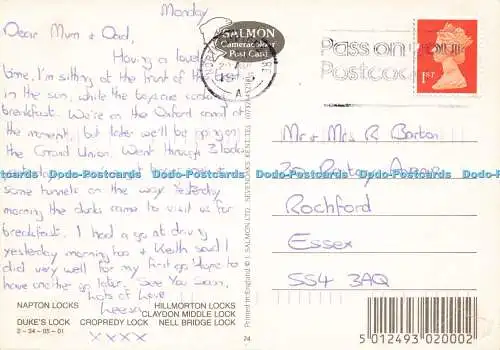 Monday
Dear Mum & Dad,
Having a lovely
time, I'm sitting at the front of the boat
in the sun, while the boys are cooking
breakfast. We're on the Oxford canal at
the moment, but later we'll be going on
the Grand Union. Went through 3 locks
some tunnels on the way. Yesterday
morning the ducks came to visit us for
breakfast. I had a go at driving
yesterday morning too & Keith said I
did very well for my first go. Hope to
have another go later. See You Soon,
Lots of Love
xxxx
NAPTON LOCKS HILLMORTON LOCKS
CLAYDON MIDDLE LOCK
DUKE'S LOCK CROPREDY LOCK NELL BRIDGE LOCK
2-34-05-01
SALMON
Cameracolour
Post Card
Printed in England © J. SALMON LTD., SEVENOAKS, KENT.
74
A
Pass on your
Postcode
1ST
Mr & Mrs R Barton
Rochford
Essex
SS4 3AQ
5 012493 020002
D-Postcards D-Postcards D-Postcards D-Postcards D-Postcards